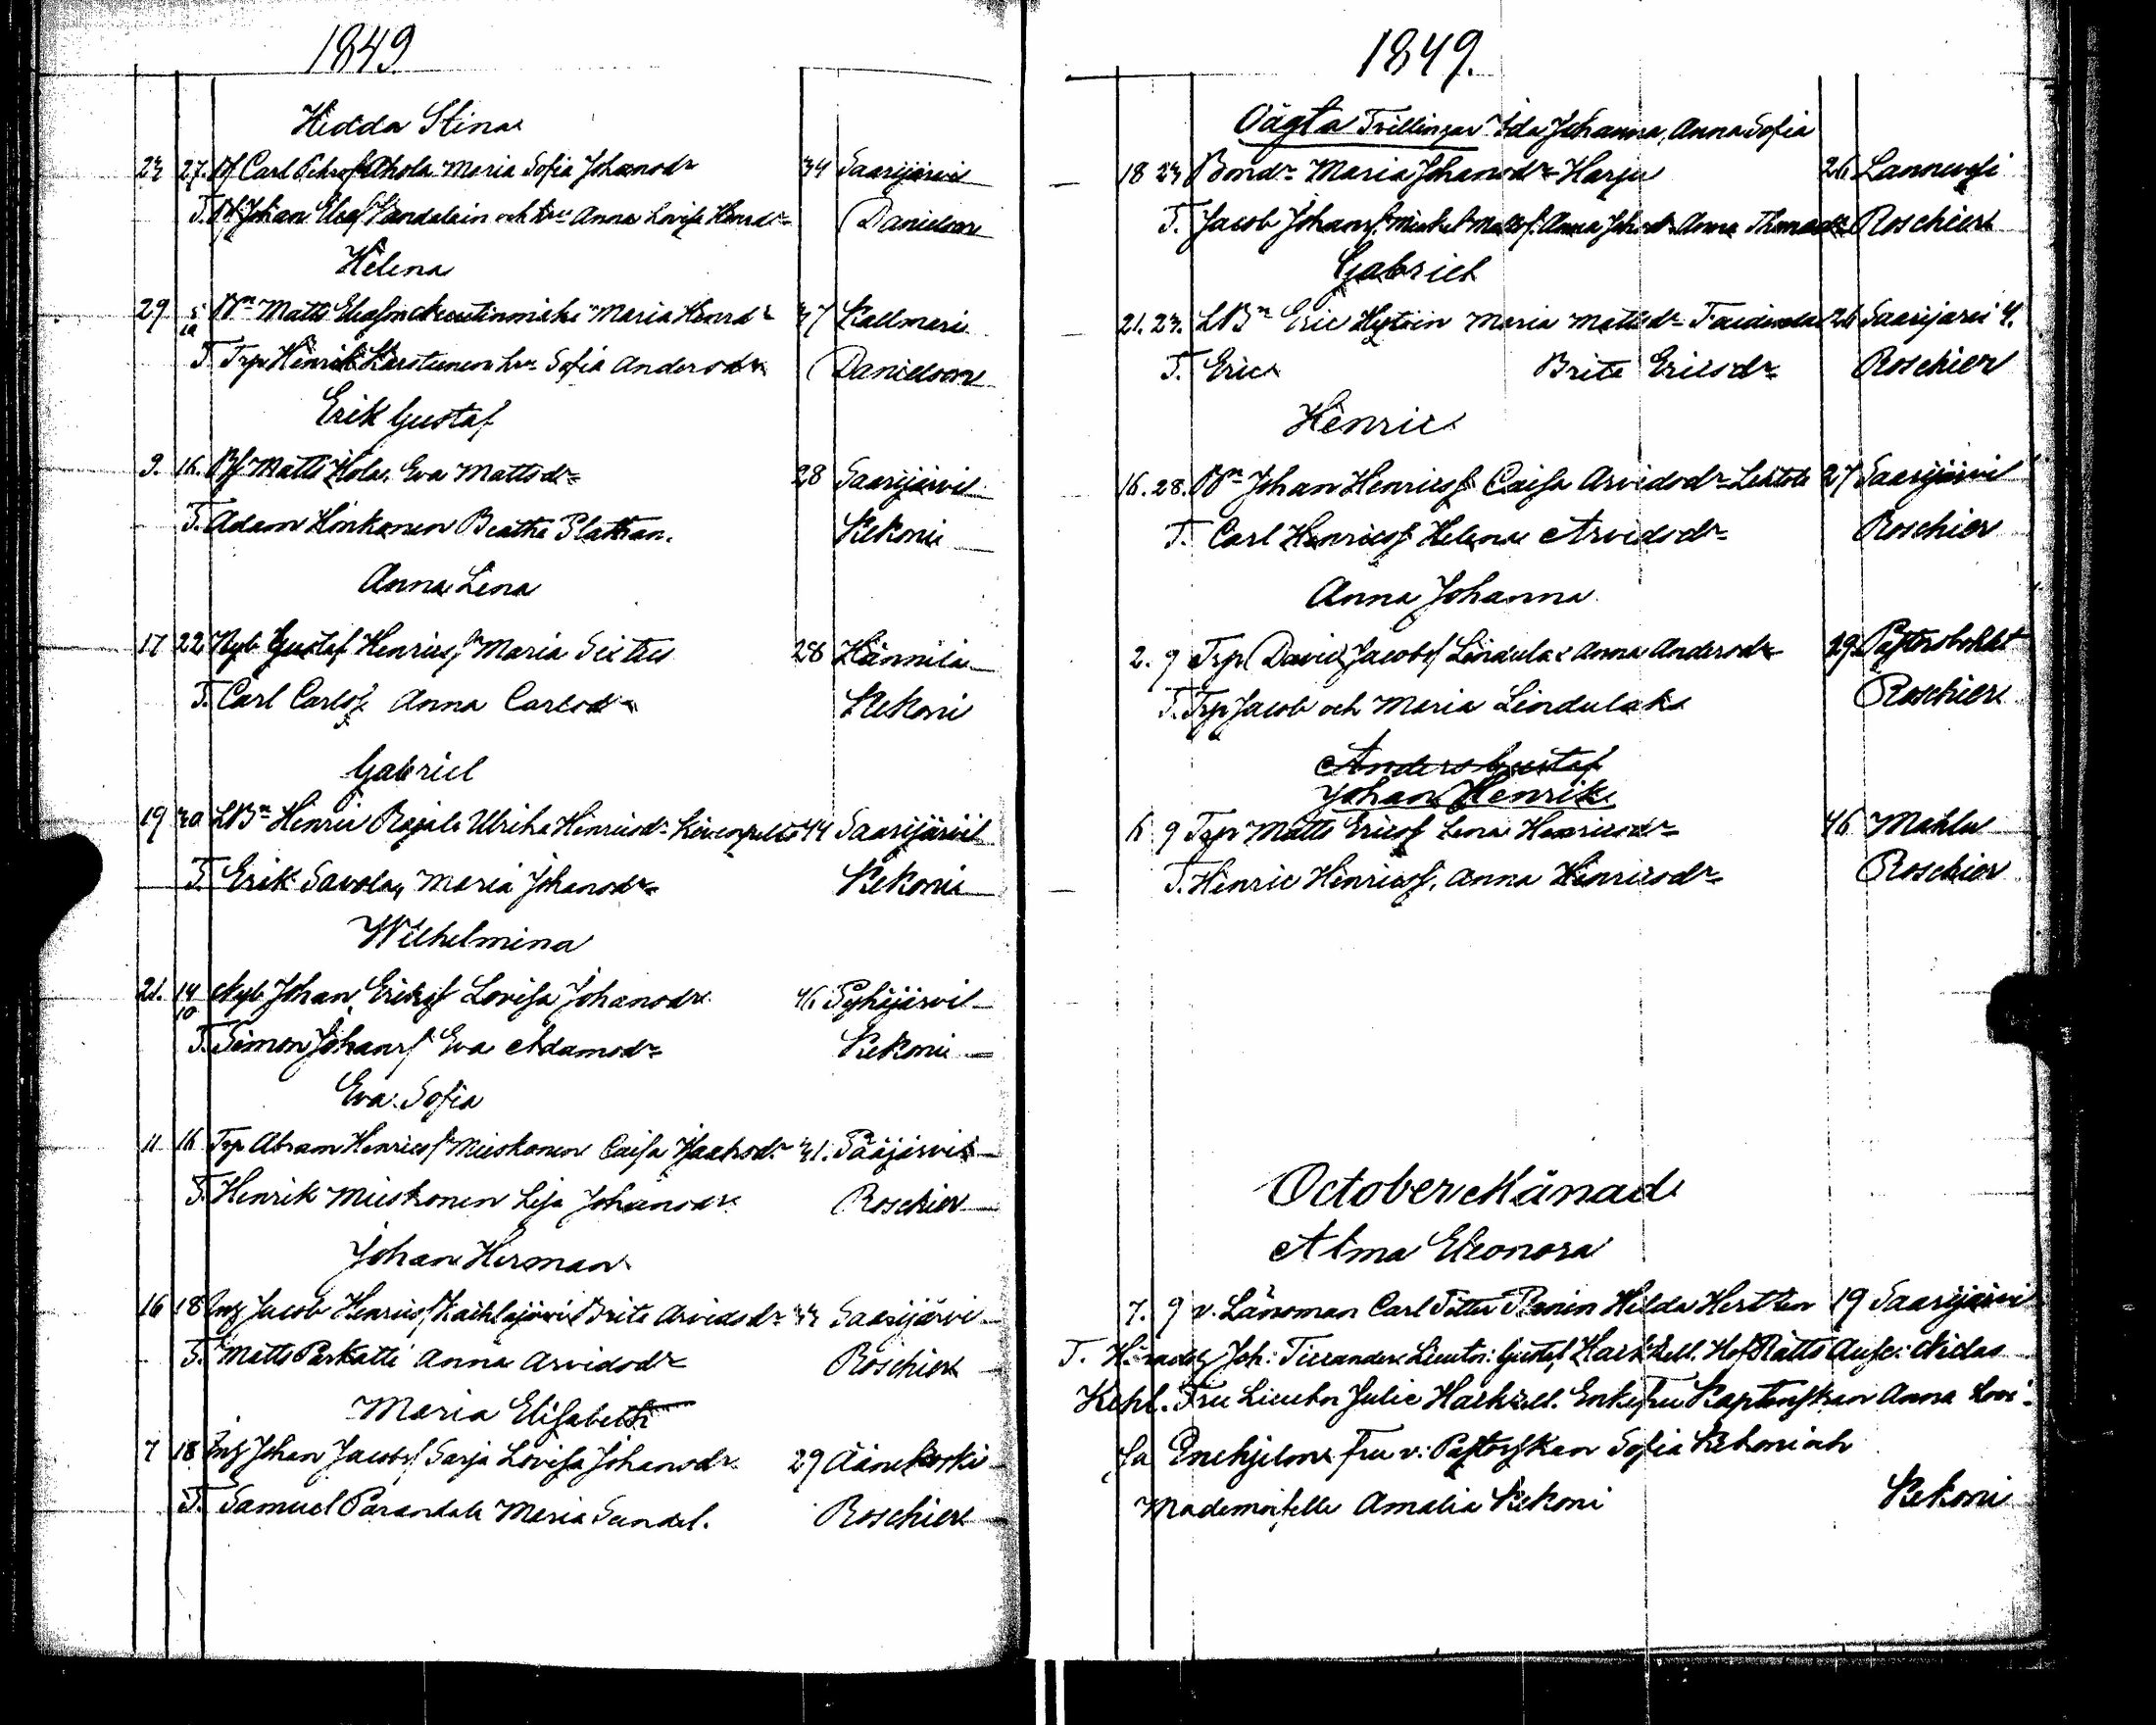 1849
Hedda Stina
23 27. Bs Carl Ahola Maria Sofia Johansdr 34 Saarijärvi
T. Bs Johan och hu Anna Lovisa Henrdr Danielson
Helena
29 5/10 Bn Matts Maria Henrdr 37 Kallmari
T. Trp Henrik Karstunen hu Sofia Andersdr Danielson
Erik Gustaf
9. 16. Bs Matts Hola, Eva Mattsdr 28 Saarijärvi
T. Adam Honkonen Beatha Plathan. Kekoni
Anna Lena
17 22 Nyb Gustaf Henricss Maria 28 Hännilä
T. Carl Carlss Anna Carlsdr Kekoni
Gabriel
19 30 LBn Henric Rajala Ulrika Henricsdr 44 Saarijärvi
T. Erik Savola, Maria Johansdr Kekoni
Wilhelmina
21. 14/10 Nyb Johan Erikss Lovisa Johansdr 46 Pyhäjärvi
T. Simon Johanss Eva Adamsdr Kekoni
Eva Sofia
11 16 Trp Abram Henricss Mieskonen Caisa Isaksdr 31. Pääjärvi
T. Henrik Mieskonen Lisa Johansdr Roschier
Johan Herman
16 18 Ing Jacob Henricss Kaihlajärvi Brita Arvidsdr 33 Saarijärvi
T. Matts Parkatti Anna Arvidsdr Roschier
Maria Elisabeth
7 18 Ing Johan Jacobss Sarja Lovisa Johansdr 29 Äänekoski
T. Samuel Parandala Maria Sundel. Roschier
1849.
Oägta Trillingar Ida Johanna, Anna Sofia
18 23 Bondr Maria Johansdr Harju 26 Lannevesi
T. Jacob Johanss. Mickel Mattss. Anna Johsdr Anna Thomasdr Roschier
Gabriel
21. 23. LBn Eric Hytöin Maria Mattsdr 26 Saarijärvi 4.
T. Eric Brita Ericsdr Roschier
Henric
16. 28. Bn Johan Henricss Caisa Arvidsdr Lehtola 27 Saarijärvi
T. Carl Henricss Helena Arvidsdr Roschier
Anna Johanna
2. 9 Trp David Jacobss Lindula Anna Andersdr 29 Pastorsbohlet
T. Trp Jacob och Maria Lindulaks Roschier
Anders Gustaf
Johan Henrik
6 9 Trp Matts Ericss Lena Henricsdr 46 Mahlu
T. Henric Henricss, Anna Henricsdr Roschier
October Månad
Alma Eleonora
7. 9 v. Länsman Carl Petter Renin Hilda Hertten 19 Saarijärvi
T. Joh: Ticcander Lieutn: Gustaf Hackzell. HofRätts Ausc: Niclas
Kihl. Fru Lieutn Julie Hackzell. Enkefru Kaptenskan Anna Lovi-
sa Enehjelm Fru v: Pastorskan Sofia Kekoni och
Mademoiselle Amalia Kekoni Kekoni